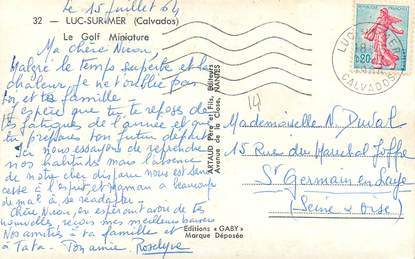 Le 15 juillet 64
32 — LUC-SUR-MER (Calvados)
Le Golf Miniature
Ma Chère
Malgré le temps superbe et la
chaleur, je ne t'oublie pas
toi et ta famille.
J'espère que tu te reposes de
de l'année et que
tu prépares ton futur départ
Ici nous essayons de reprendre
nos habitudes mais l'absence
de notre cher disparu nous est sans
cesse à l'esprit, et Maman a beaucoup
de mal à se réadapter.
en espérant avoir de tes
nouvelles, reçois mes meilleurs baisers
Nos amitiés à ta famille et
à Tata. Ton amie. Roselyne
ARTAUD Père et Fils, Éditeurs
Avenue de la Close, NANTES
Editions "GABY"
Marque Déposée
REPUBLIQUE FRANÇAISE
0,20
LUC
CALVADOS
14
Mademoiselle N. Duval
15 Rue du Maréchal Joffre
St Germain en Laye
(Seine & Oise)